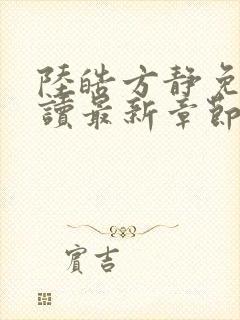 陸皓方靜免
讀最新章節
賓吉